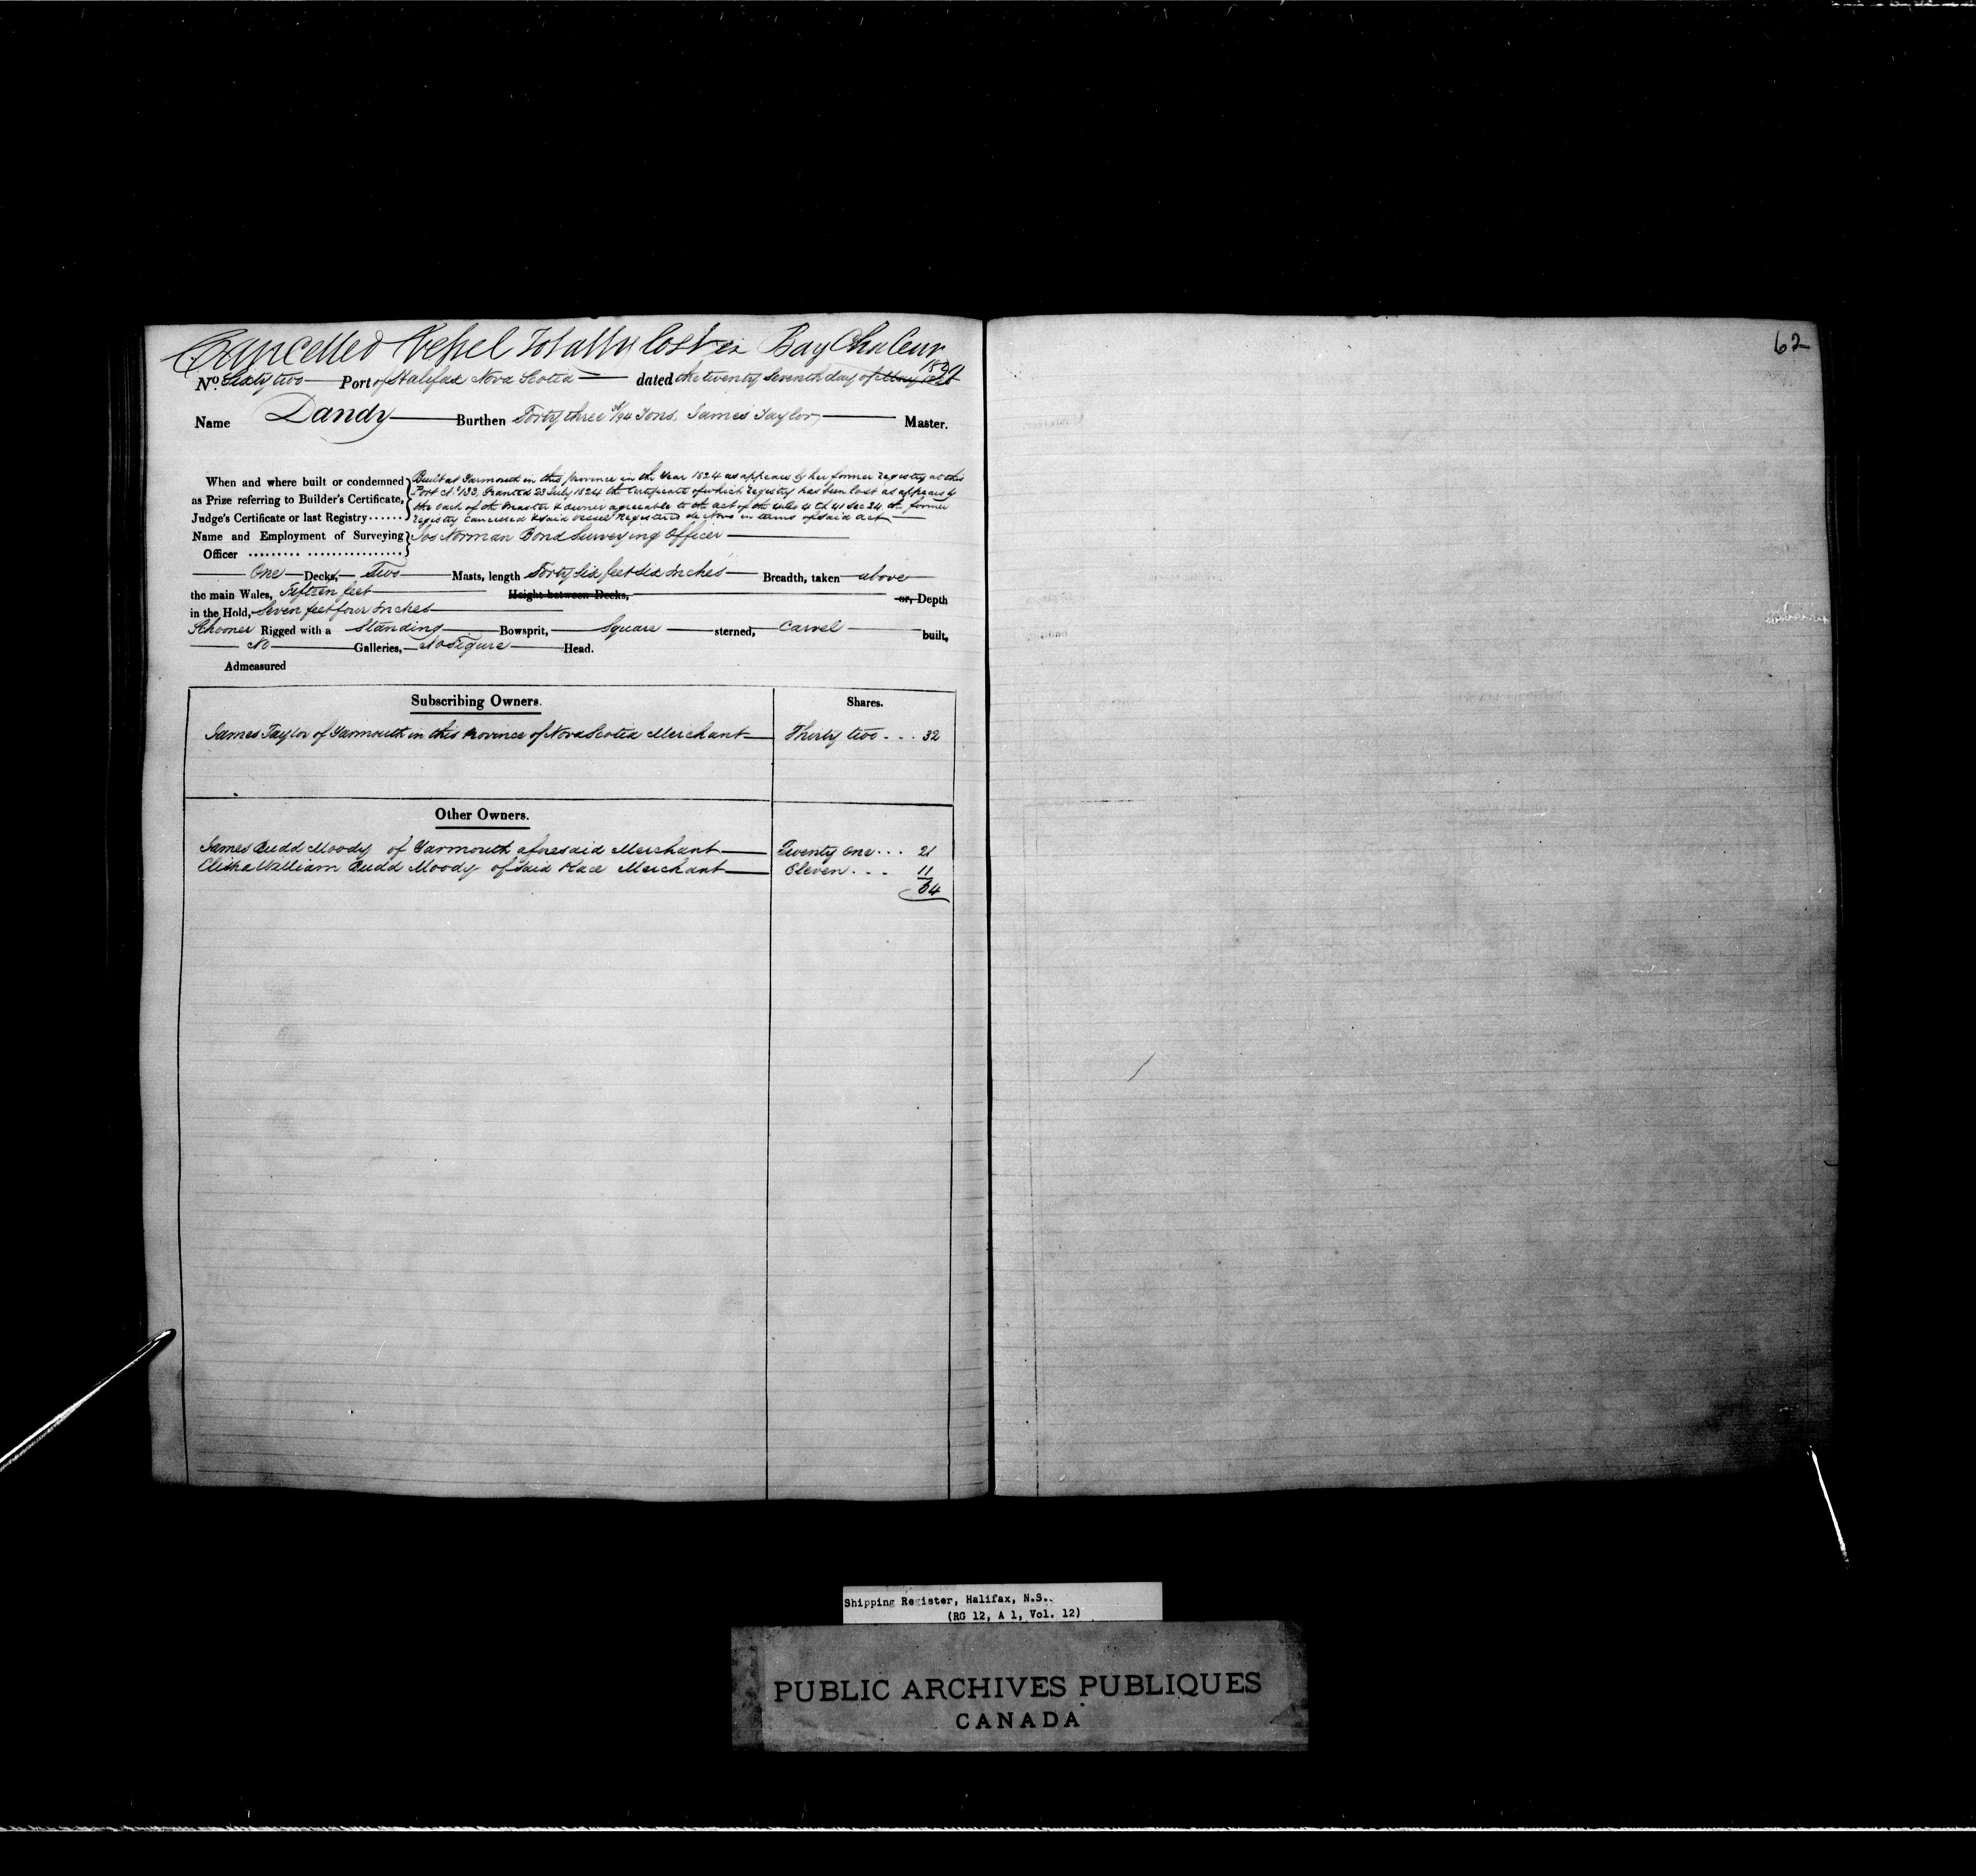 Cancelled Vessel Totally lost in Bay Chaleur
1829
62
No. Sixty two Port of Halifax Nova Scotia dated the twenty Seventh day of May 1828
Name Dandy Burthen Forty three /94 Tons, James Taylor, Master.
When and where built or condemned as Prize referring to Builder's Certificate, Judge's Certificate or last Registry......
Built at Yarmouth in this Province in the Year 1824 as appears by her former registry at this
Port No. 133, Granted 23 July 1824 the Certificate of which registry has been lost as appears by
the oath of the Master & owner agreeable to the act of the 4 Ch 41 Sec 24 the former
registry Cancelled & said vessel Registered de Novo in terms of said act
Name and Employment of Surveying Officer ......... ................
Jos Norman Bond Surveying Officer
One Decks, Two Masts, length Forty Six feet Six Inches Breadth, taken above
the main Wales, Fifteen feet Height between Decks, or, Depth
in the Hold, Seven feet four Inches
Schooner Rigged with a Standing Bowsprit, Square sterned, Carvel built,
No Galleries, No Figure Head.
Admeasured
Subscribing Owners. Shares.
James Taylor of Yarmouth in this Province of Nova Scotia Merchant Thirty two . . . 32
Other Owners.
James Budd Moody of Yarmouth aforesaid Merchant Twenty One . . . 21
Elisha William Budd Moody of said Place Merchant Eleven . . . 11
64
Shipping Register, Halifax, N.S..
(RG 12, A 1, Vol. 12)
PUBLIC ARCHIVES PUBLIQUES
CANADA